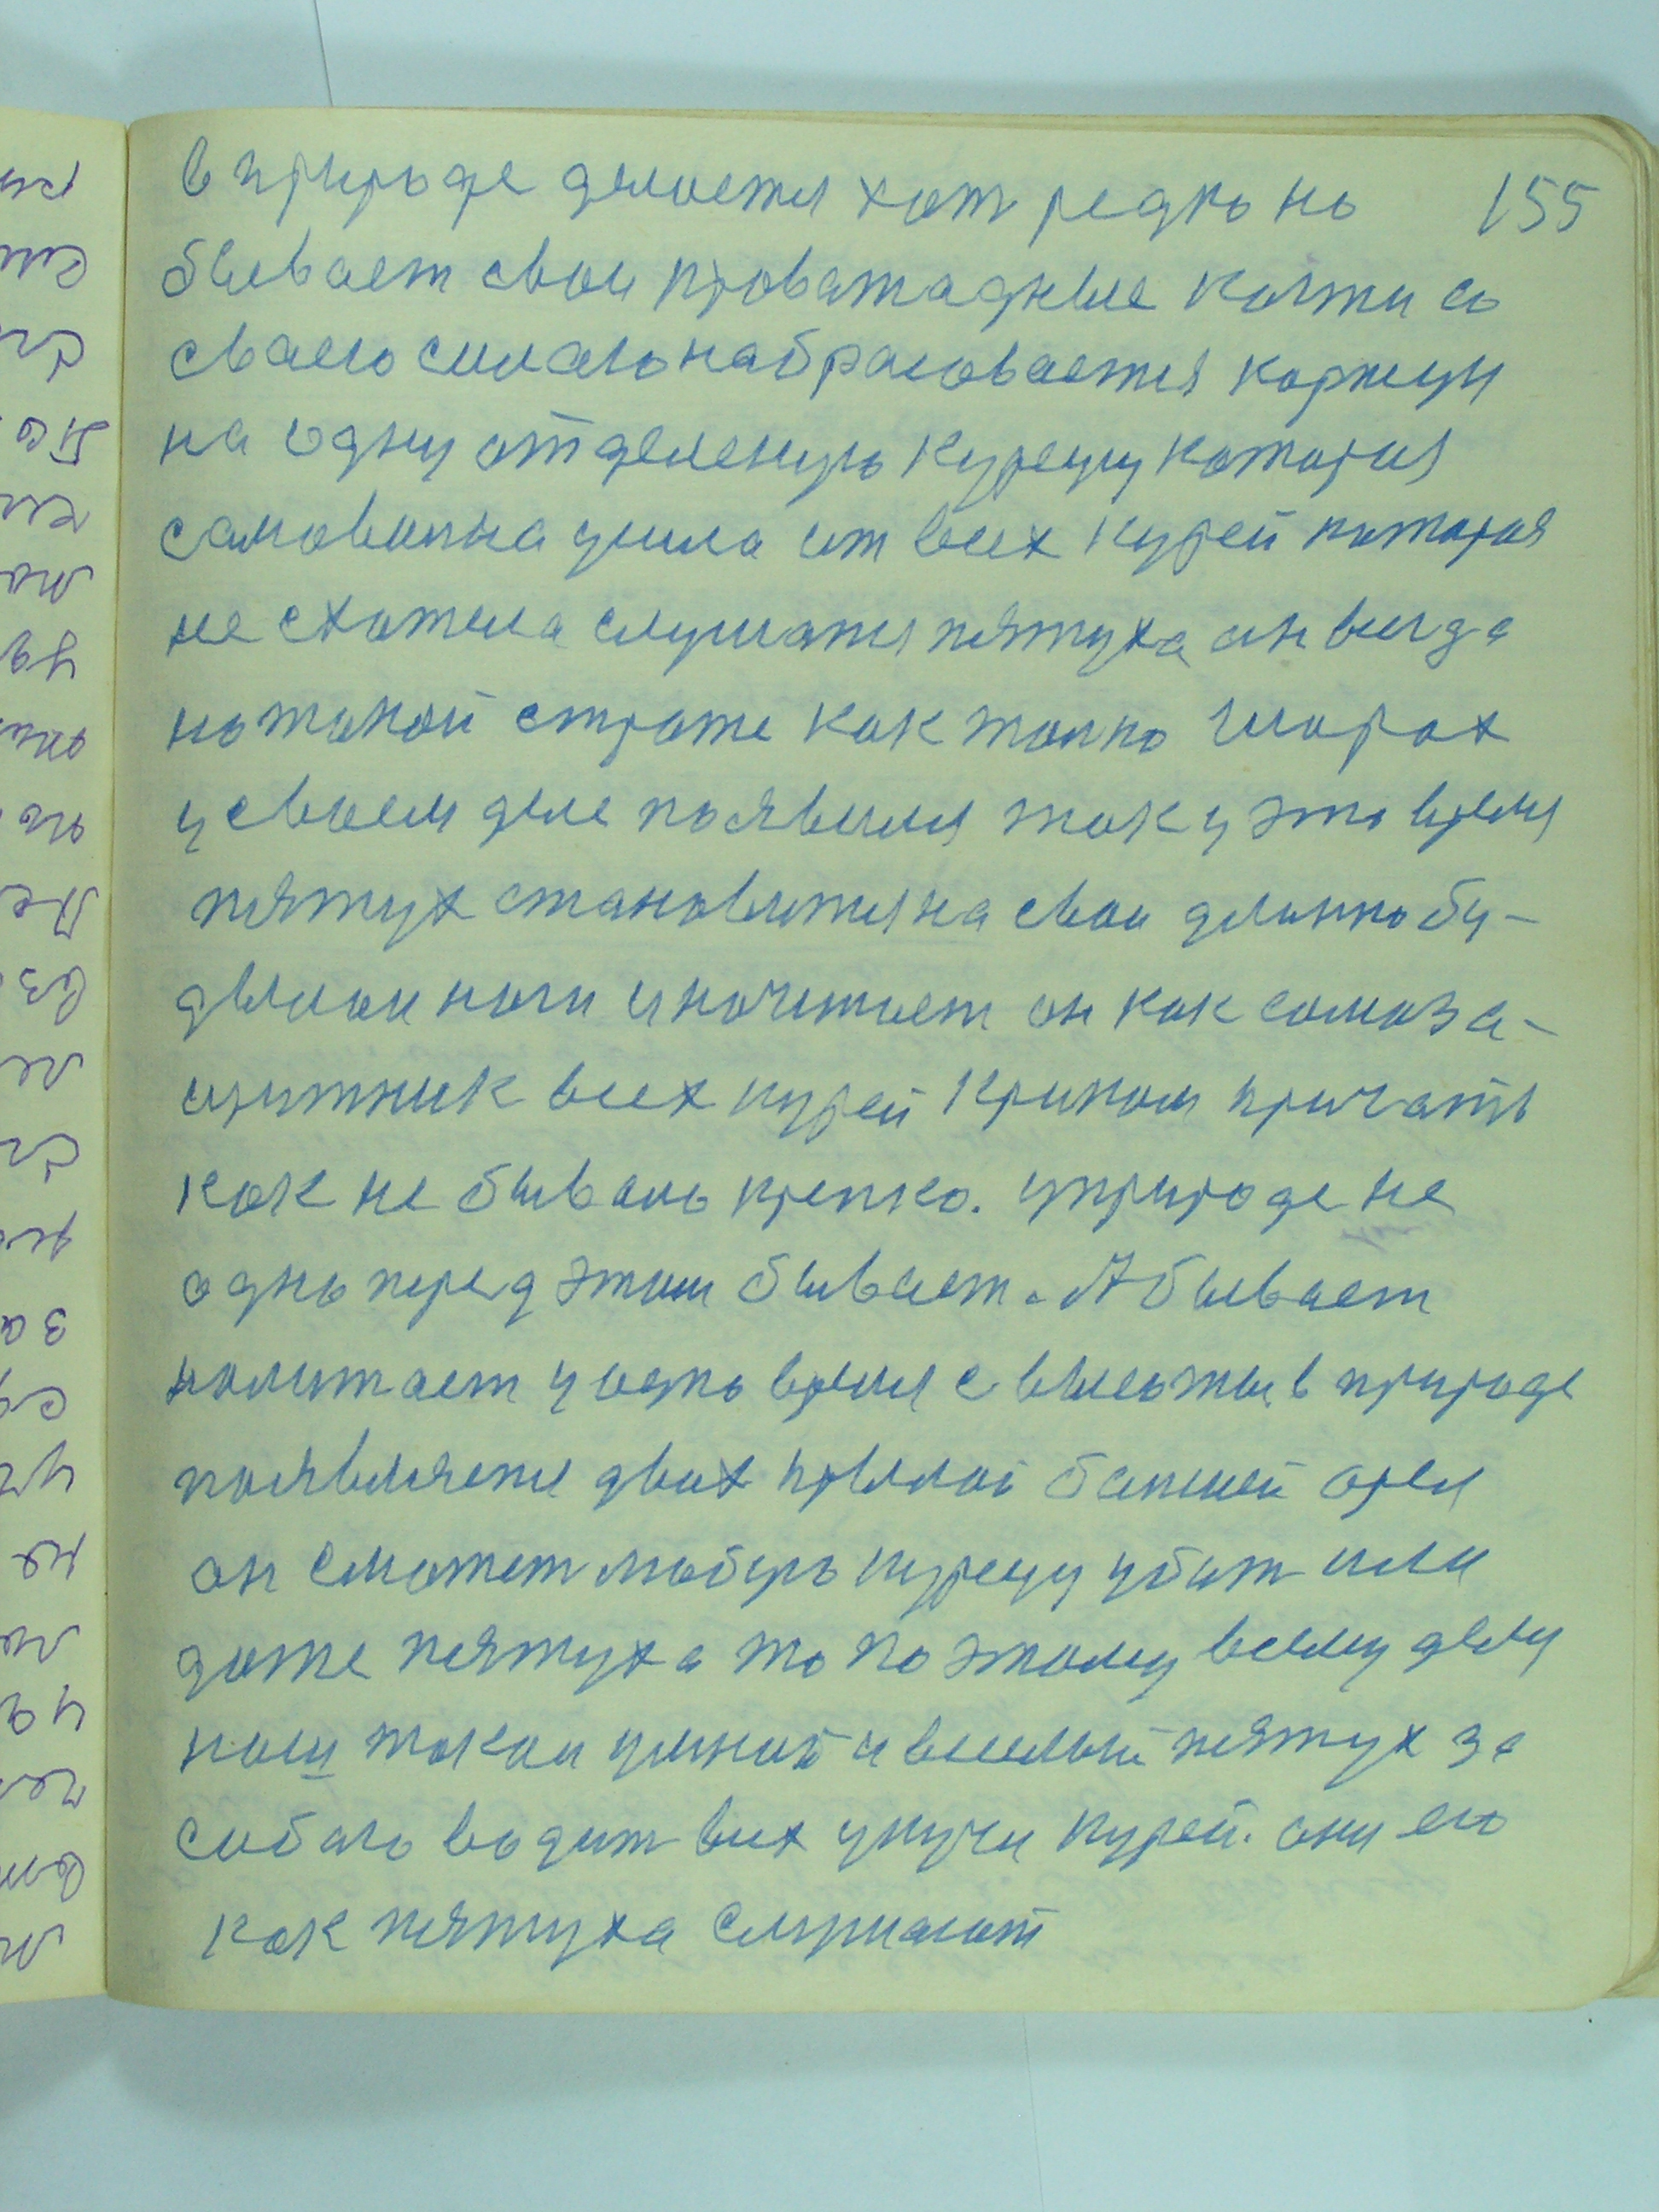 в природе делается хот редко но 155
бывает свои кровожадные когти со
сваею силаю набрасовается коршун
на одну отделеную курецу которая
самовольна ушла от всех курей которая
не схотела слушатся пятуха он всегда
на такой страже как толко шорах
у своем деле появился так у это время
пятух становится на свои длинно бу-
дылаи ноги и начинает он как самоза-
щитник всех курей криком кричать
как не бывало крепко. у природе не
одно перед этим бывает. А бывает
налитает у одно время с высоты в природе
появляется двох крылой балшей орел
он сможет любую курецу убит или
даже пятуха то по этому всему делу
наш такаи умнай и веселый пятух за
сабаю водит всех у кучи курей. они его
как пятуха слушают